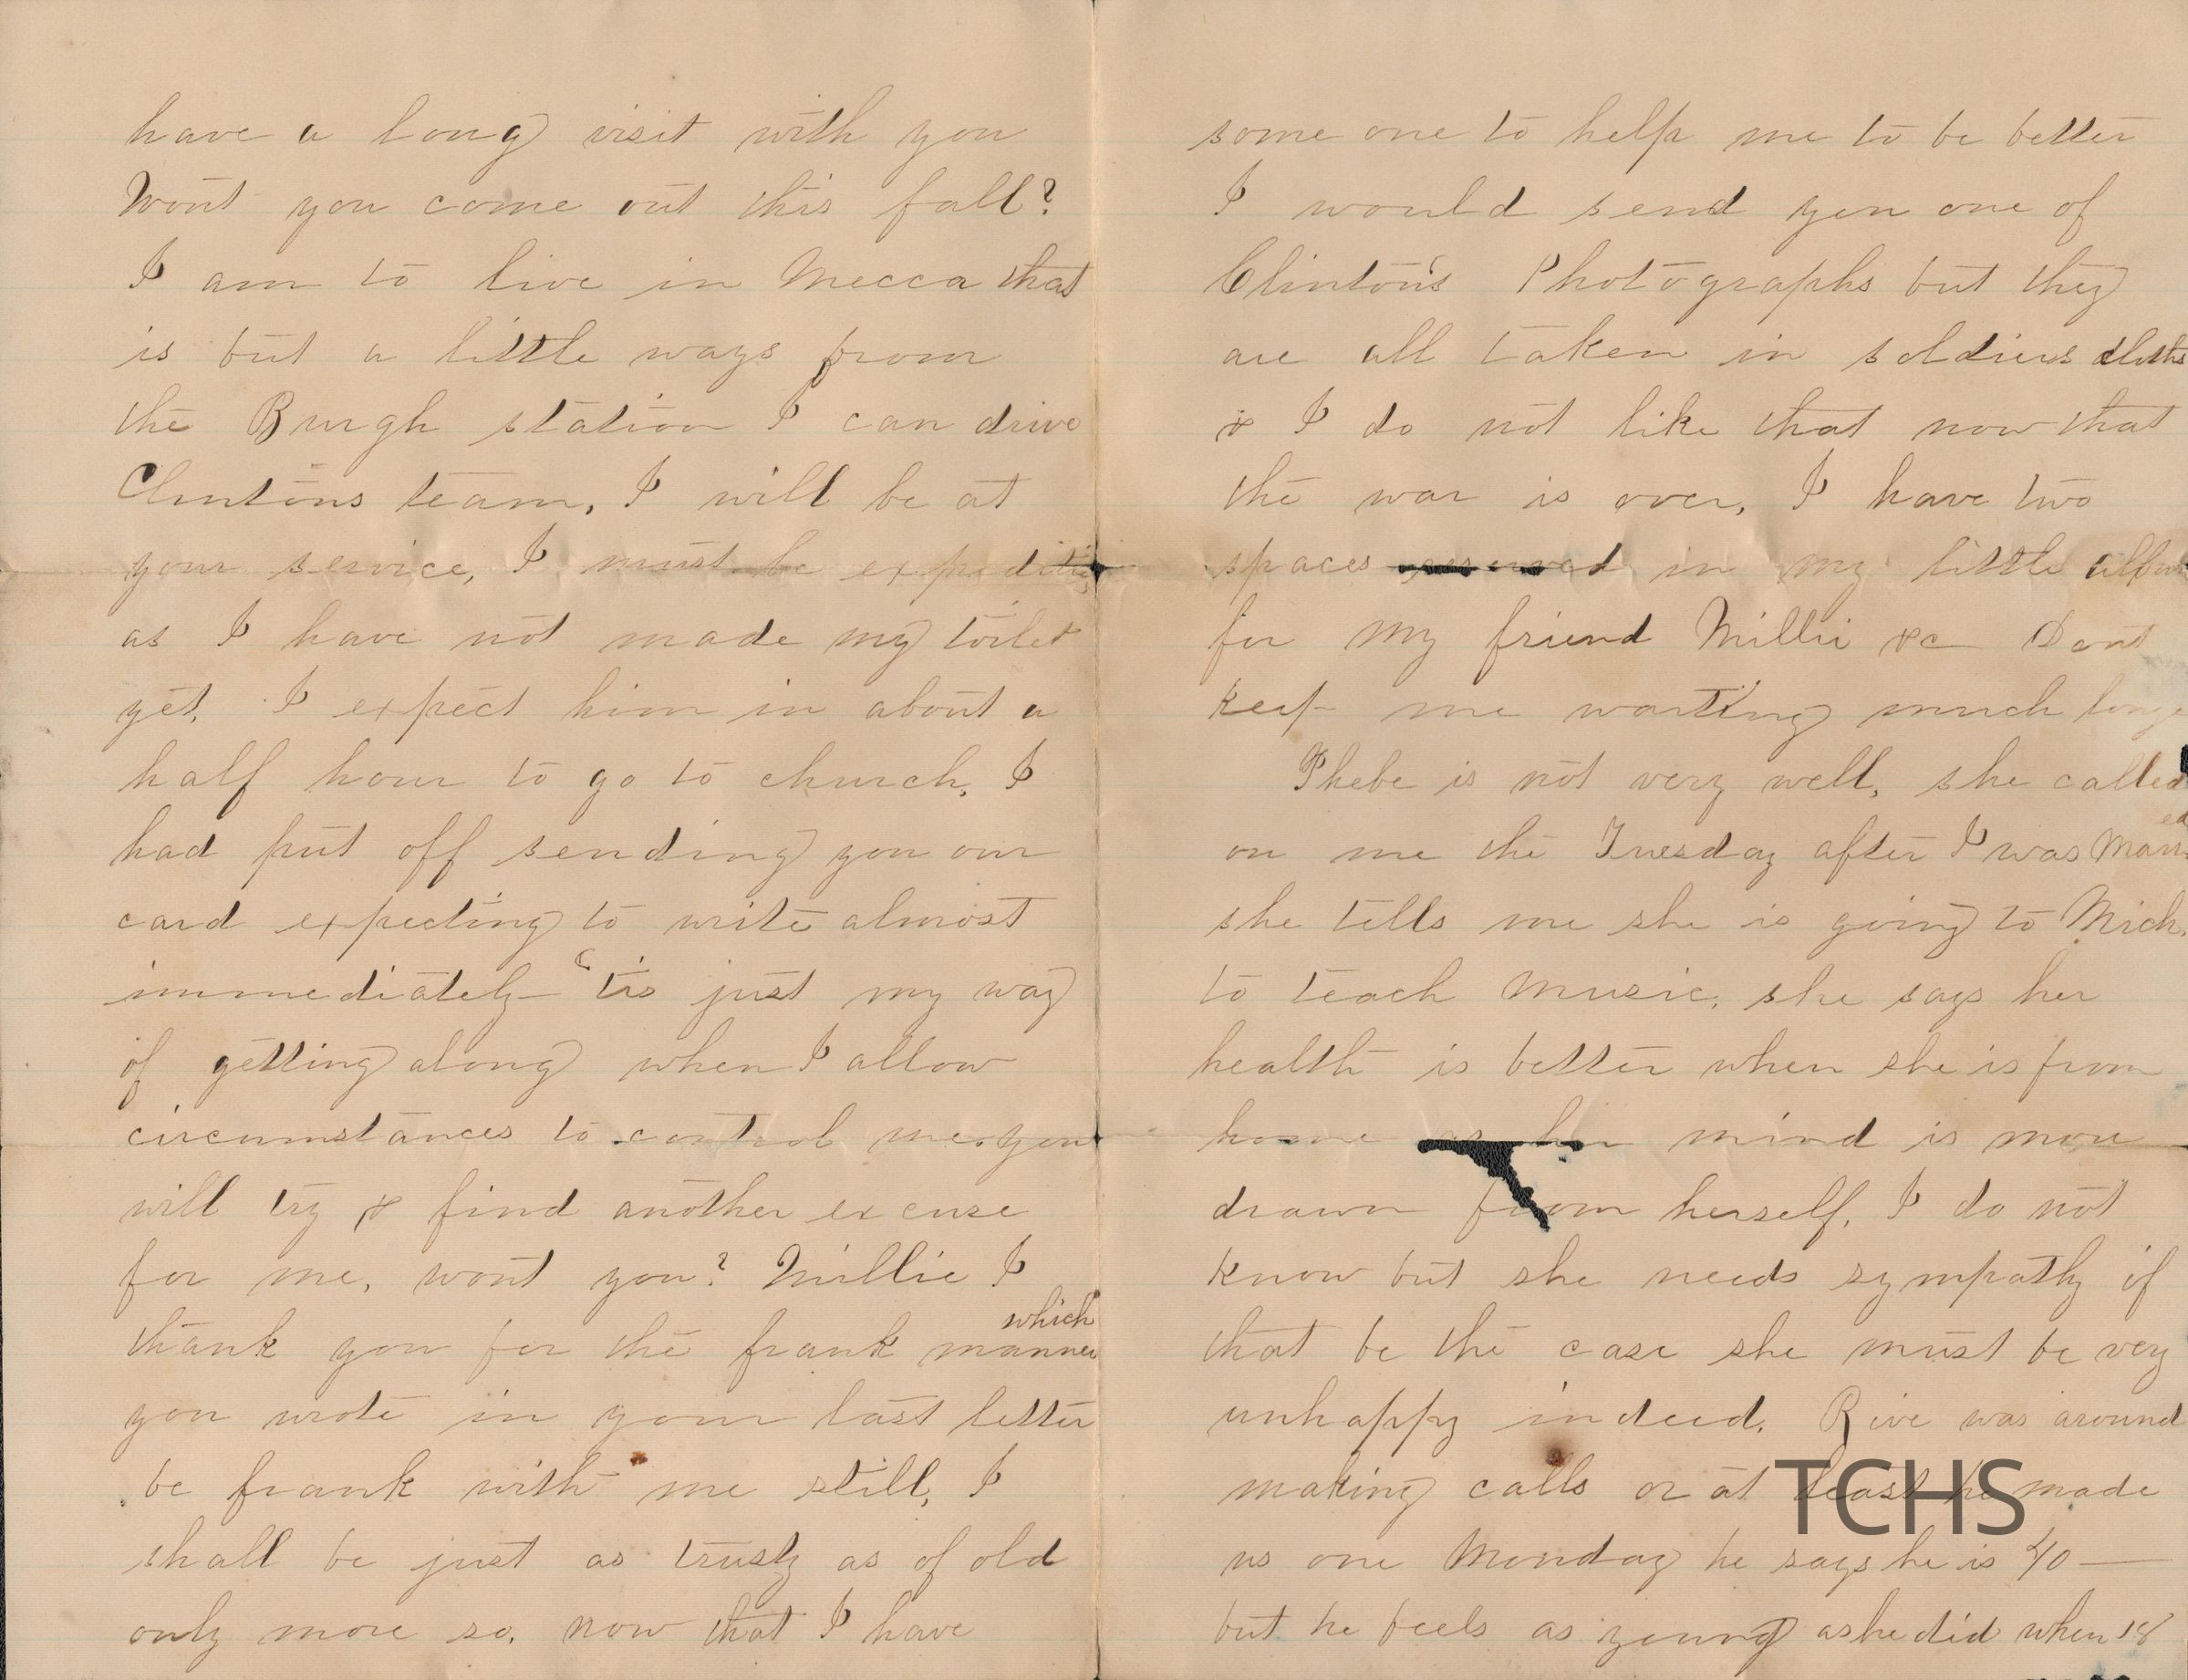 have a long visit with you
Wont you come out this fall?
I am to live in Mecca that
is but a little ways from
the Burgh station I can drive
Clintons team, I will be at
your service, I must be expeditious
as I have not made my toilet
yet. I expect him in about a
half hour to go to church, I
had put off sending you our
card expecting to write almost
immediately 'tis just my way
of getting along when I allow
circumstances to control me. you
will try & find another excuse
for me, wont you? Millie I
which
thank you for the frank manner
you wrote in your last letter
be frank with me still, I
shall be just as trusty as of old
only more so. now that I have
some one to help me to be better
I would send you one of
Clinton's Photographs but they
are all taken in soldiers cloths
& I do not like that now that
the war is over, I have two
spaces reserved in my little album
for my friend Millie &c Dont
keep me waiting much longer
Phebe is not very well, she called
ed
on me the Tuesday after I was Marri
she tells me she is going to Mich.
to teach Music, she says her
health is better when she is from
home as her mind is more
drawn from herself, I do not
know but she needs sympathy if
that be the case she must be very
unhappy indeed. Rive was around
making calls or at least he made
us one Monday he says he is 40 —
but he feels as young as he did when 18
TCHS